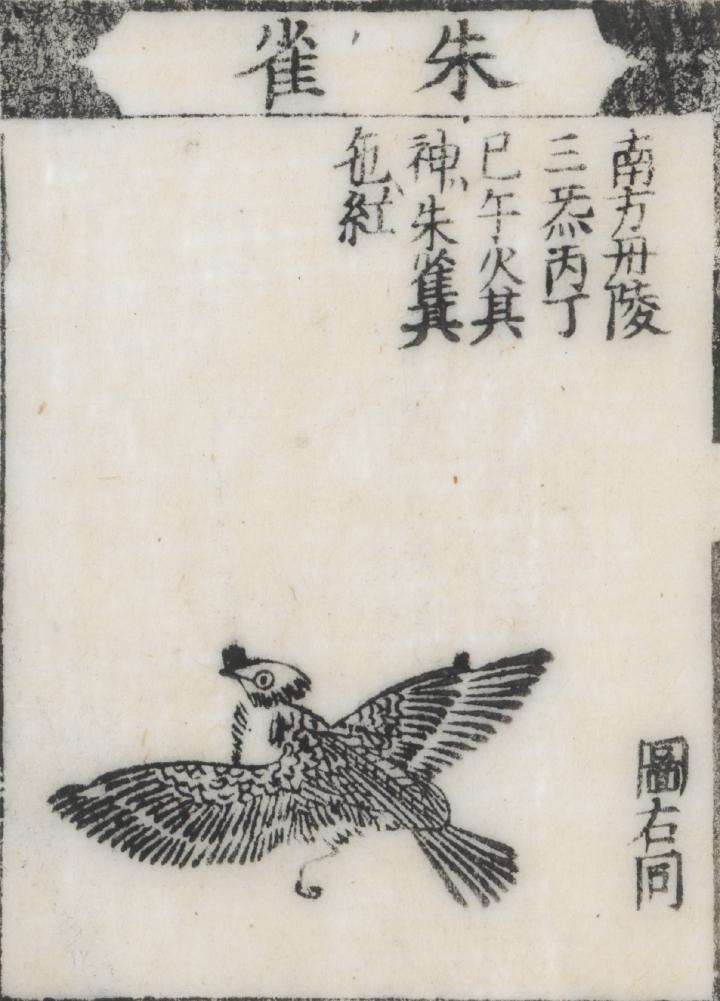 朱雀
南方丹陵
三炁丙丁
巳午火其
神朱雀其
色紅
圖右同